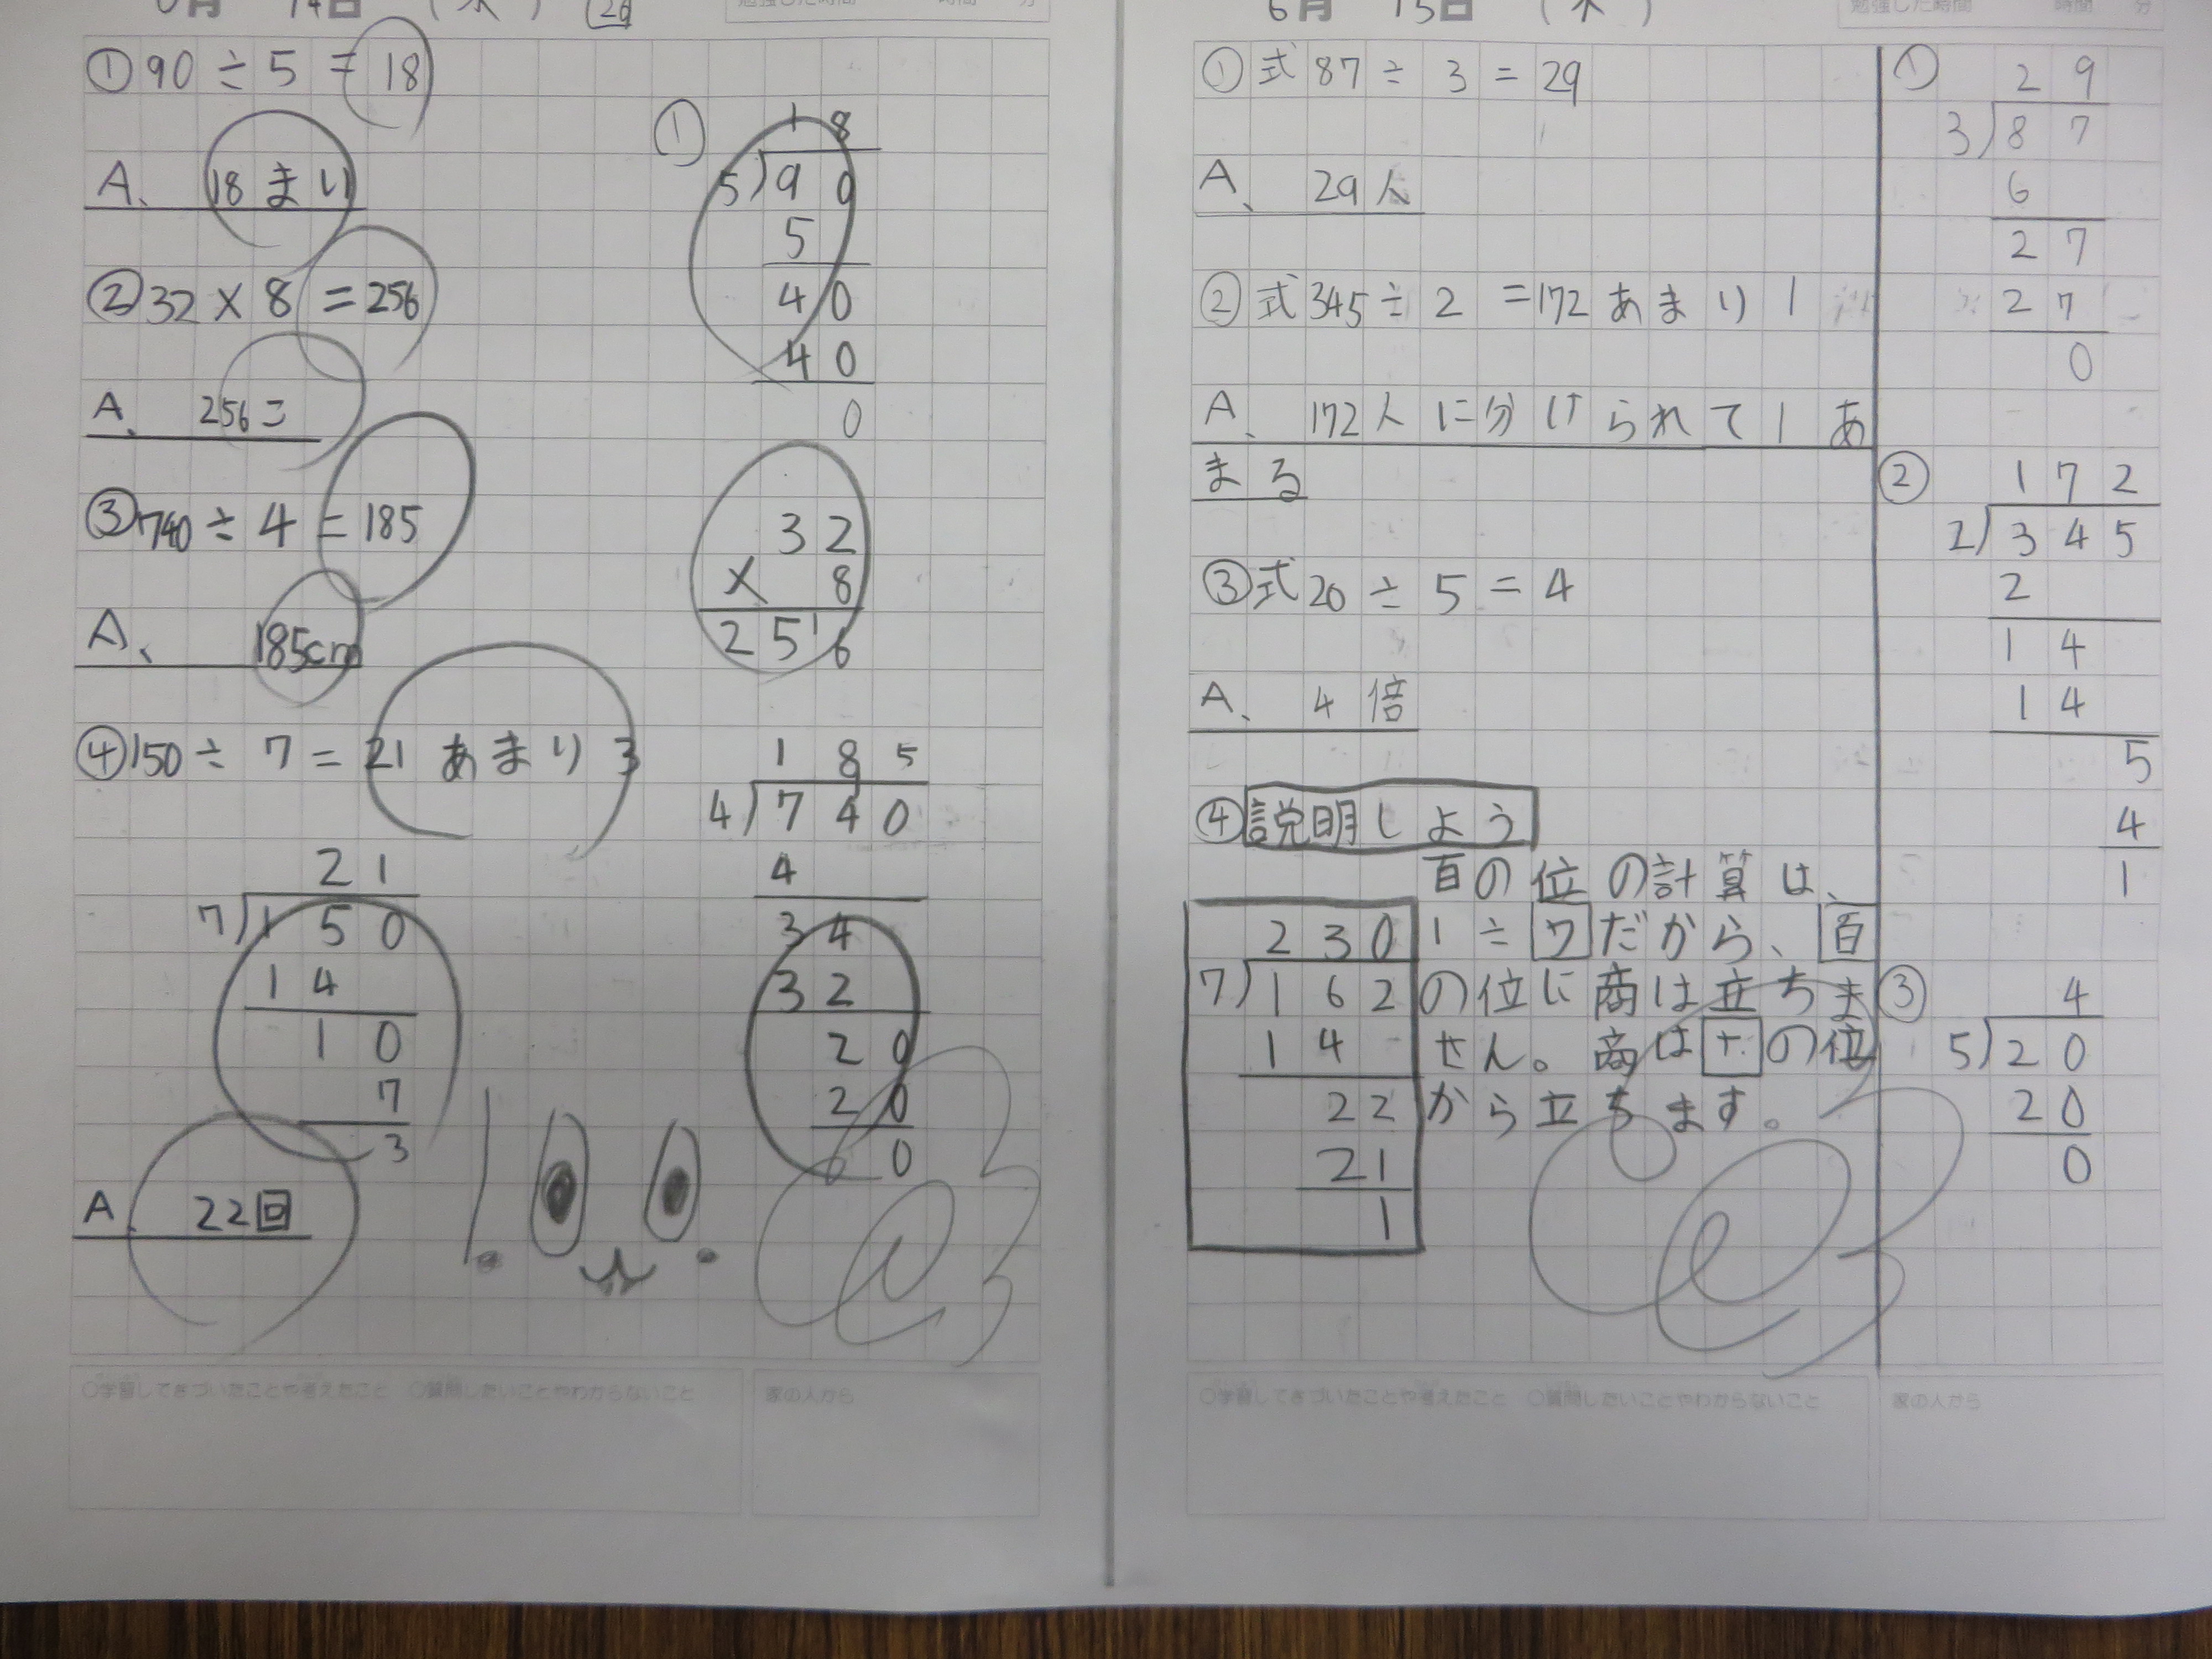 14日
① 90 ÷ 5 = 18
A、 18まい
② 32 × 8 = 256
A、 256コ
③ 740 ÷ 4 = 185
A、 185cm
④ 150 ÷ 7 = 21 あまり 3
2 1
7)1 5 0
1 4
1 0
7
3
A、 22回
①
1 8
5)9 0
5
4 0
4 0
0
3 2
× 8
2 5 1 6
1 8 5
4)7 4 0
4
3 4
3 2
2 0
2 0
0
○学習してきづいたことや考えたこと ○質問したいことやわからないこと
家の人から
6月 15日 (木)
勉強した時間 時間 分
① 式 87 ÷ 3 = 29
A、 29人
② 式 345 ÷ 2 = 172 あまり 1
A、 172人に分けられて1あ
まる
③ 式 20 ÷ 5 = 4
A、 4倍
④ 説明しよう
百の位の計算は、
1 ÷ 7 だから、百
の位に商は立ちま
せん。商は十の位
から立ちます。
2 3 0
7)1 6 2
1 4
2 2
2 1
1
①
2 9
3)8 7
6
2 7
2 7
0
②
1 7 2
2)3 4 5
2
1 4
1 4
5
4
1
③
4
5)2 0
2 0
0
○学習してきづいたことや考えたこと ○質問したいことやわからないこと
家の人から